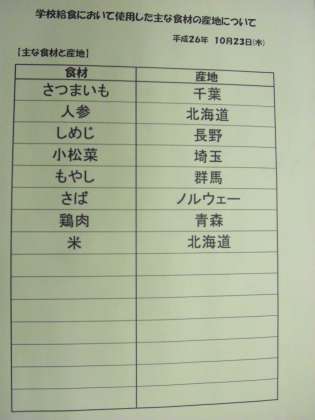 学校給食において使用した主な食材の産地について
平成26年 10月23日(木)
【主な食材と産地】
食材 産地
さつまいも 千葉
人参 北海道
しめじ 長野
小松菜 埼玉
もやし 群馬
さば ノルウェー
鶏肉 青森
米 北海道